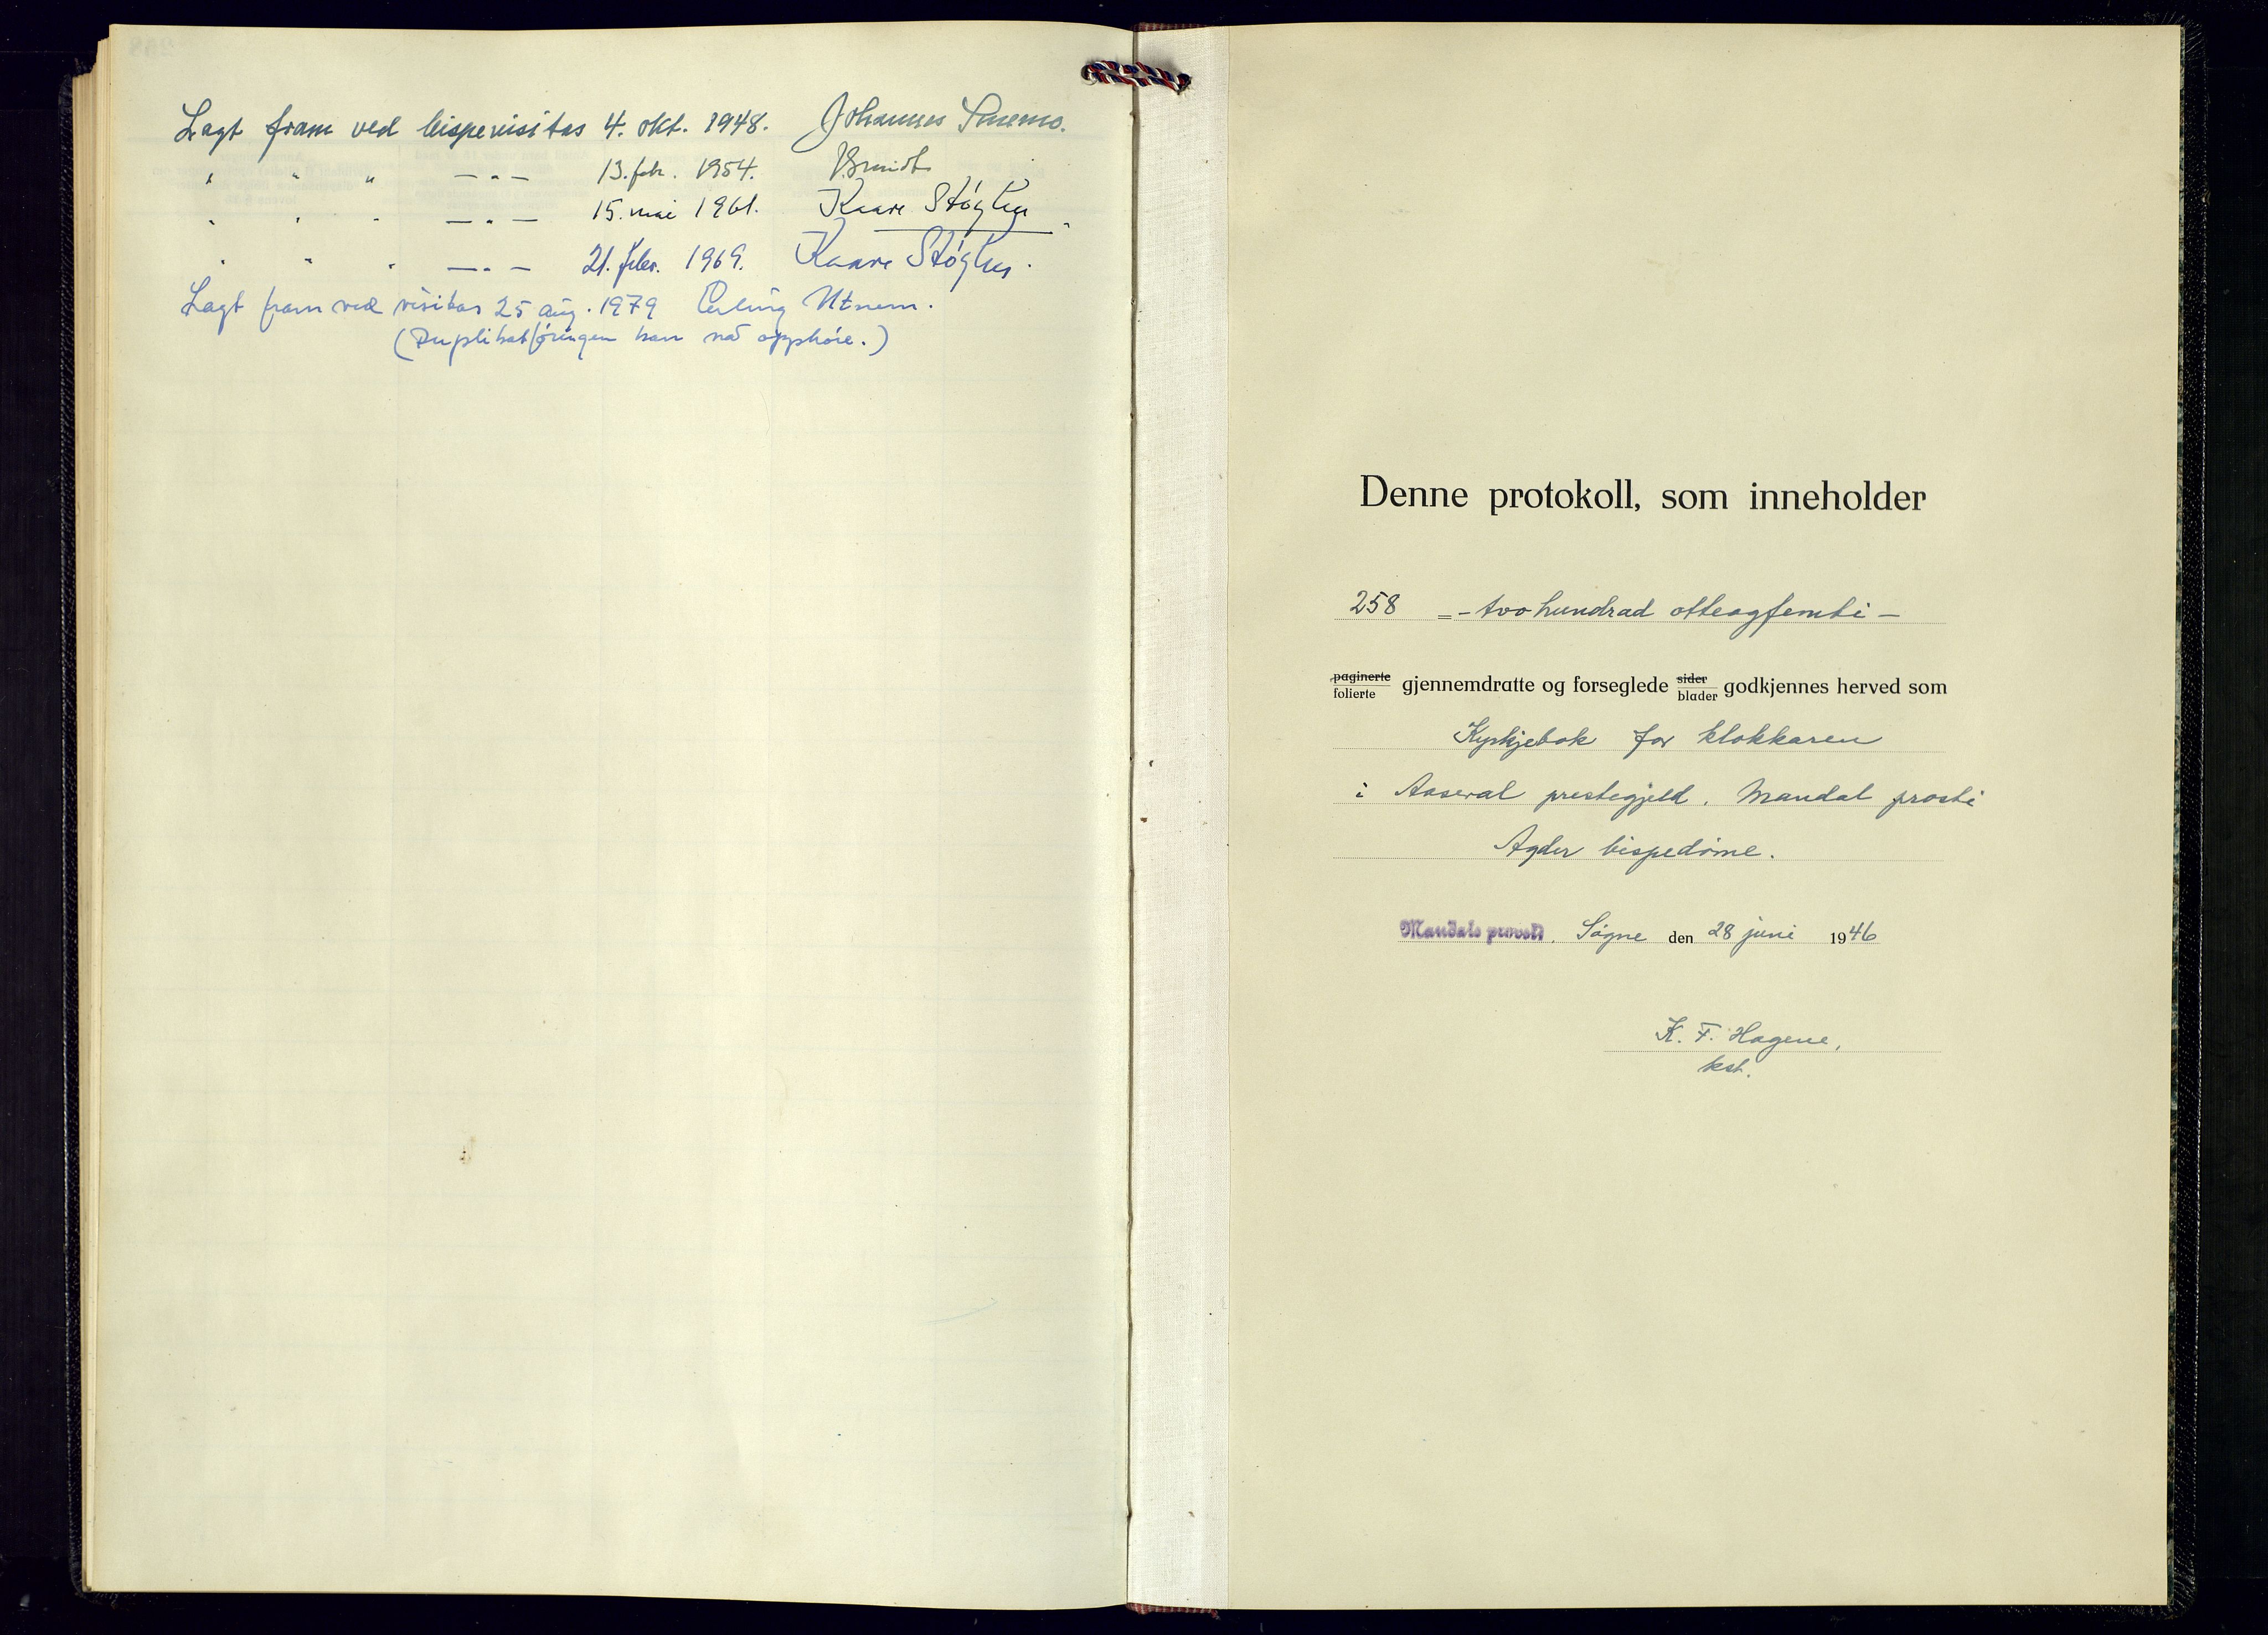 Lagt fram ved bispevisitas 4. okt. 1948. Johannes Smemo.
" " " — " — 13. febr. 1954. J. Smidt
" " " — " — 15. mai 1961. Kaare Støylen
" " " — " — 21. febr. 1969. Kaare Støylen.
Lagt fram ved visitas 25 aug. 1979 Erling Utnem.
(Duplikatføringen kan nå opphøre.)
Denne protokoll, som inneholder
258 = - tvo hundrad otteogfemti -
paginerte
folierte gjennemdratte og forseglede sider
blader godkjennes herved som
Kyrkjebok for klokkaren
i Aaseral prestegjeld. Mandal prosti
Agder bispedøme.
Mandals provsti. Søgne den 28 juni 1946
K. F. Hagene,
kst.